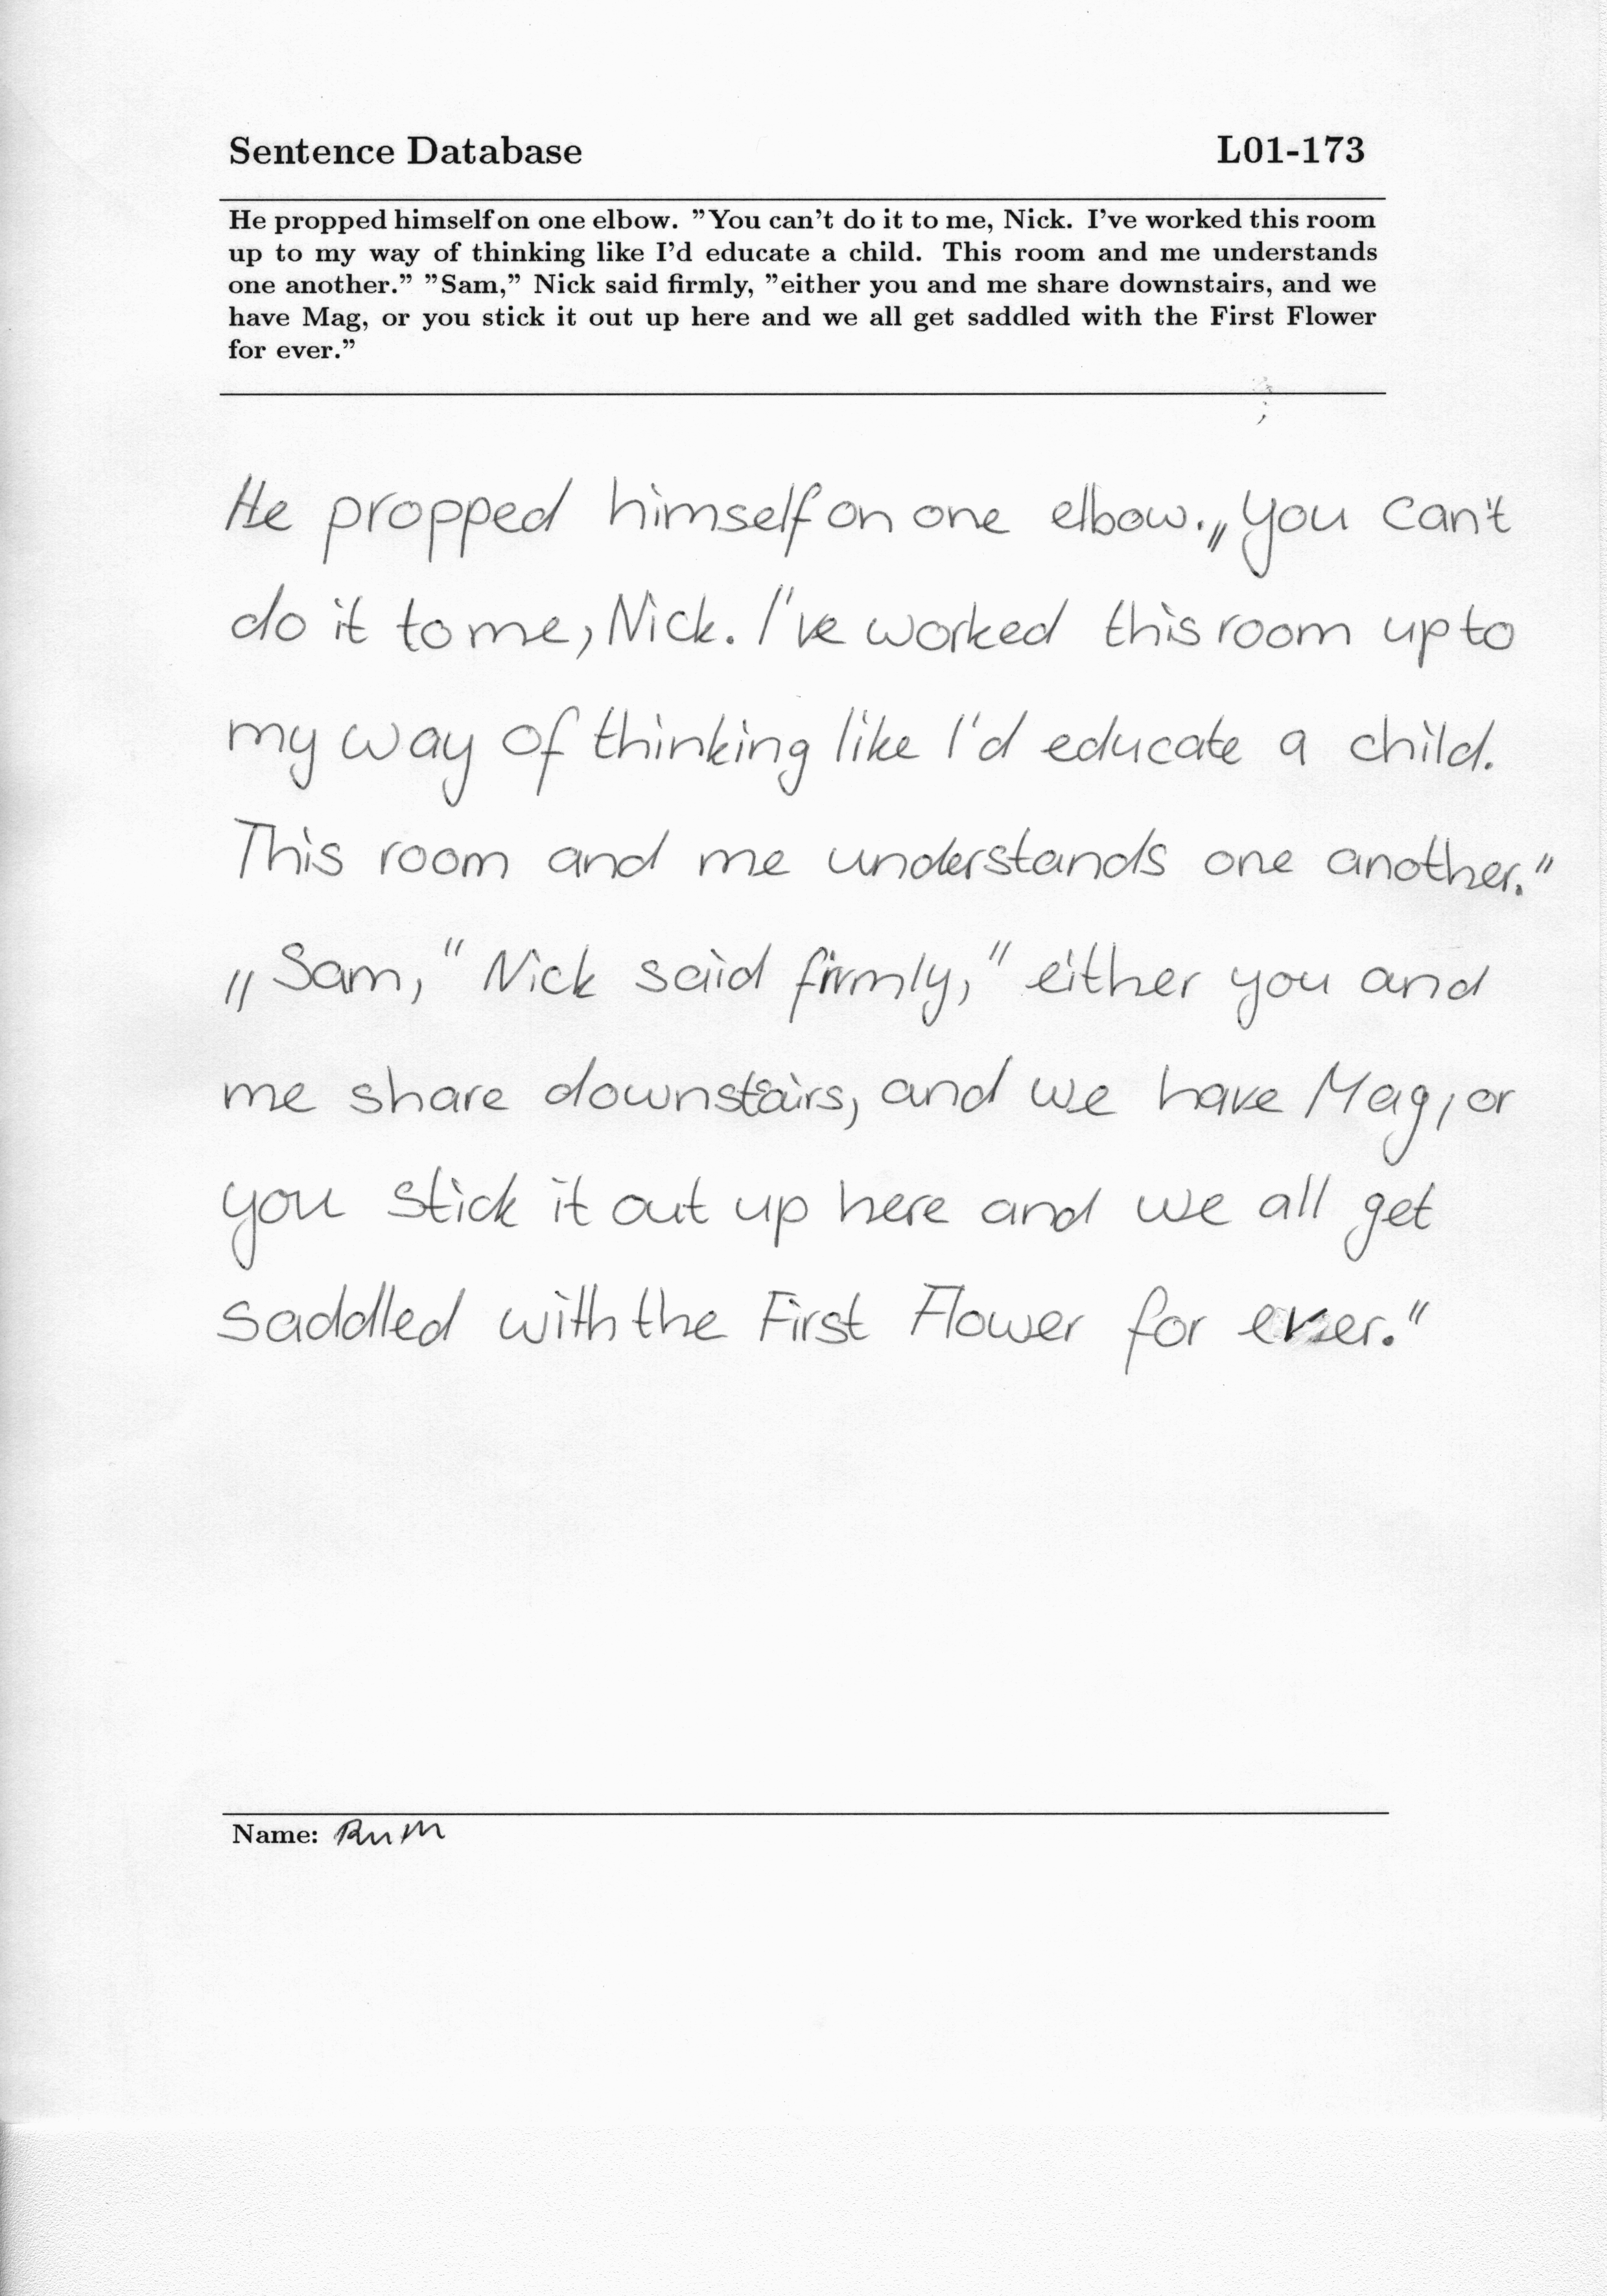 Sentence Database L01-173
He propped himself on one elbow. ”You can’t do it to me, Nick. I’ve worked this room
up to my way of thinking like I’d educate a child. This room and me understands
one another.” ”Sam,” Nick said firmly, ”either you and me share downstairs, and we
have Mag, or you stick it out up here and we all get saddled with the First Flower
for ever.”
He propped himself on one elbow. „You can't
do it to me, Nick. I've worked this room up to
my way of thinking like I'd educate a child.
This room and me understands one another."
„Sam," Nick said firmly," either you and
me share downstairs, and we have Mag, or
you stick it out up here and we all get
saddled with the First Flower for ever."
Name: